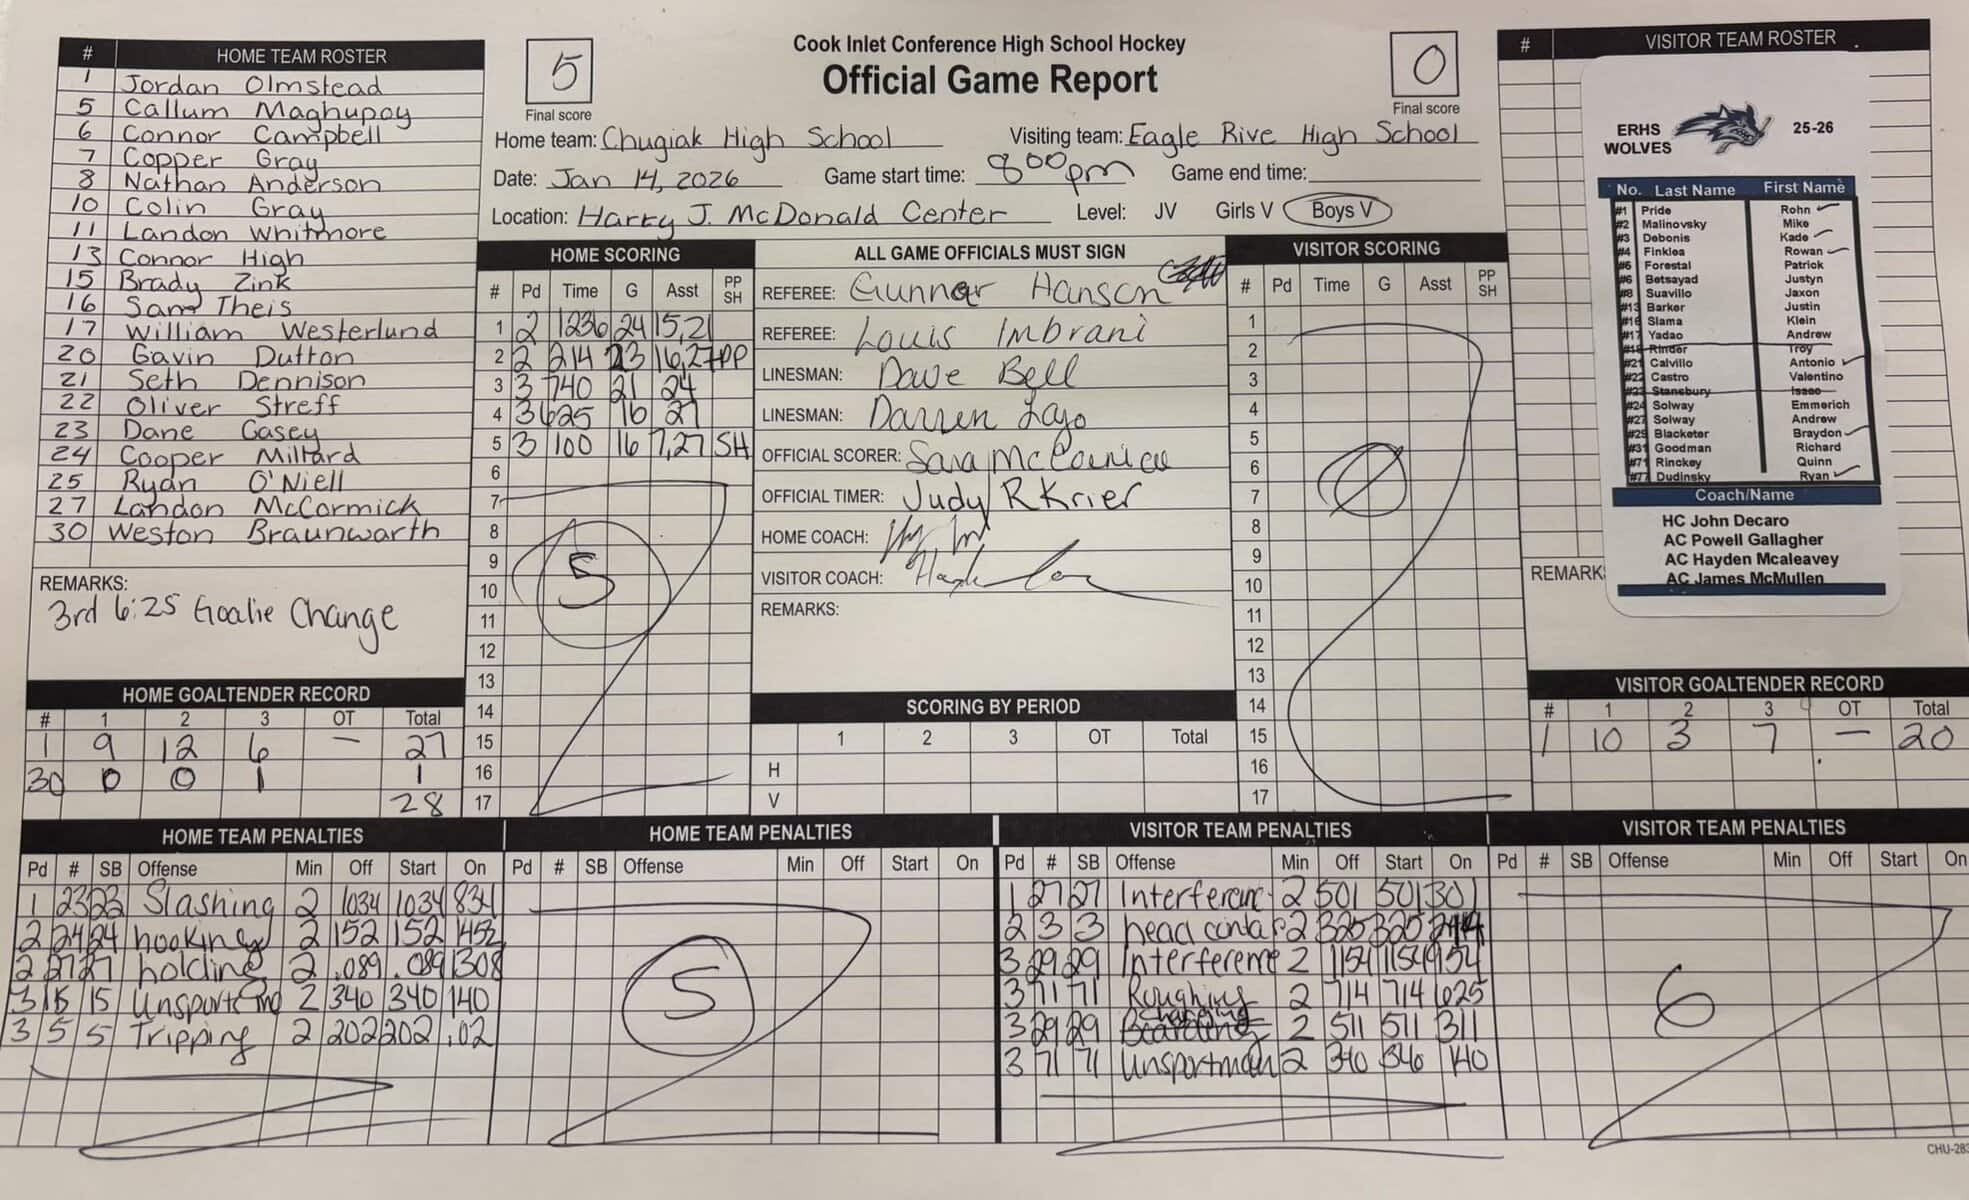 Cook Inlet Conference High School Hockey
Official Game Report
5
Final score
0
Final score
Home team: Chugiak High School
Visiting team: Eagle Rive High School
Date: Jan 14, 2026
Game start time: 8:00pm
Game end time:
Location: Harry J. McDonald Center
Level: JV Girls V Boys V
# HOME TEAM ROSTER
1 Jordan Olmstead
5 Callum Maghupoy
6 Connor Campbell
7 Copper Gray
8 Nathan Anderson
10 Colin Gray
11 Landon Whitmore
13 Connor High
15 Brady Zink
16 Sam Theis
17 William Westerlund
20 Gavin Dutton
21 Seth Dennison
22 Oliver Streff
23 Dane Casey
24 Cooper Millard
25 Ryan O'Niell
27 Landon McCormick
30 Weston Braunwarth
REMARKS:
3rd 6:25 Goalie Change
HOME GOALTENDER RECORD
# 1 2 3 OT Total
1 9 12 6 — 27
30 0 0 1 1
28
HOME SCORING
# Pd Time G Asst PP SH
1 2 1236 24 15,21
2 2 214 23 16,27 PP
3 3 740 21 24
4 3 625 16 27
5 3 100 16 7,27 SH
6
7
8
9
10
11
12
13
14
15
16
17
5
ALL GAME OFFICIALS MUST SIGN
REFEREE: Gunnar Hanson
REFEREE: Louis Imbrani
LINESMAN: Dave Bell
LINESMAN: Darren Lajo
OFFICIAL SCORER: Sara
OFFICIAL TIMER: Judy R Krier
HOME COACH:
VISITOR COACH:
REMARKS:
SCORING BY PERIOD
1 2 3 OT Total
H
V
VISITOR SCORING
# Pd Time G Asst PP SH
1
2
3
4
5
6
7
8
9
10
11
12
13
14
15
16
17
0
# VISITOR TEAM ROSTER
ERHS WOLVES 25-26
No. Last Name First Name
#1 Pride Rohn
#2 Malinovsky Mike
#3 Debonis Kade
#4 Finklea Rowan
#5 Forestal Patrick
#6 Betsayad Justyn
#8 Suavillo Jaxon
#13 Barker Justin
#16 Slama Klein
#17 Yadao Andrew
#18 Rinder Troy
#21 Calvillo Antonio
#22 Castro Valentino
#23 Stansbury Isaac
#24 Solway Emmerich
#27 Solway Andrew
#29 Blacketer Braydon
#31 Goodman Richard
#71 Rinckey Quinn
#77 Dudinsky Ryan
Coach/Name
HC John Decaro
AC Powell Gallagher
AC Hayden Mcaleavey
AC James McMullen
REMARK
VISITOR GOALTENDER RECORD
# 1 2 3 OT Total
1 10 3 7 — 20
HOME TEAM PENALTIES
Pd # SB Offense Min Off Start On
1 23 22 Slashing 2 1034 1034 834
2 24 24 hooking 2 152 152 1452
2 27 27 holding 2 .089 .089 1308
3 15 15 Unsports 2 340 340 140
3 5 5 Tripping 2 202 202 .02
HOME TEAM PENALTIES
Pd # SB Offense Min Off Start On
5
VISITOR TEAM PENALTIES
Pd # SB Offense Min Off Start On
1 27 27 Interferenc 2 501 501 301
2 3 3 head conta 2 325 325 214
3 29 29 Interference 2 1154 1154 954
3 71 71 Roughing 2 714 714 625
3 29 29 Charging 2 511 511 311
3 71 71 Unsportman 2 340 340 140
VISITOR TEAM PENALTIES
Pd # SB Offense Min Off Start On
6
CHU-283